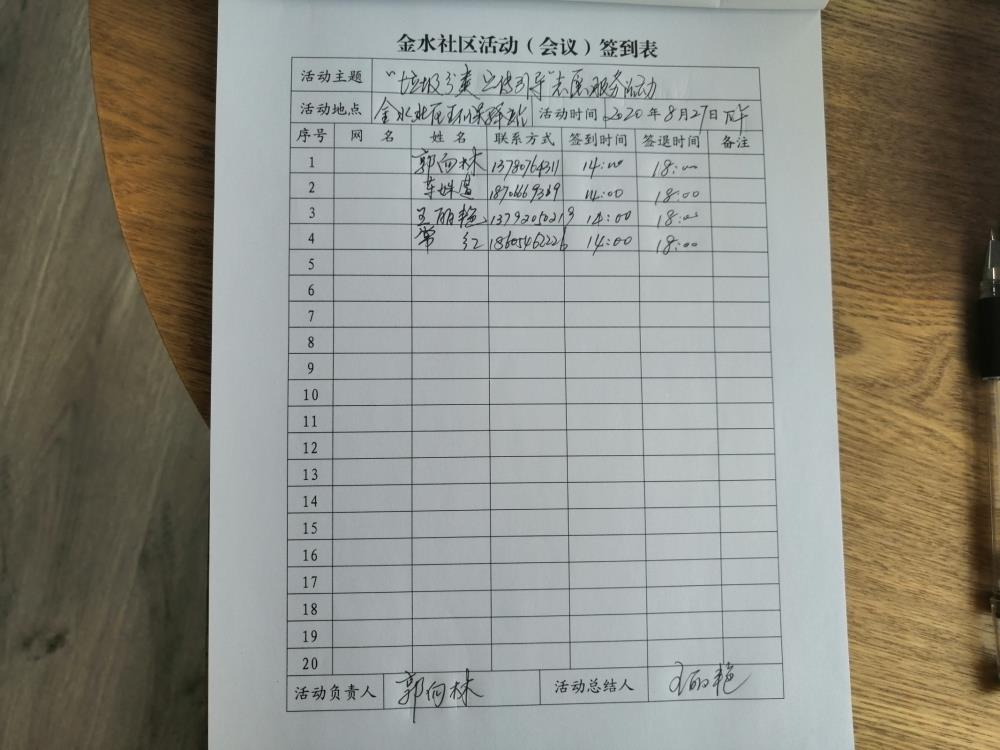 金水社区活动（会议）签到表
活动主题 "垃圾分类宣传引导"志愿服务活动
活动地点 金水社区环保驿站 活动时间 2020年8月27日下午
序号 网 名 姓 名 联系方式 签到时间 签退时间 备注
1 郭向林 13780764311 14:00 18:00
2 车姝 14:00 18:00
3 王丽艳 13792050213 14:00 18:00
4 常 红 18605462226 14:00 18:00
5
6
7
8
9
10
11
12
13
14
15
16
17
18
19
20
活动负责人 郭向林 活动总结人 王丽艳